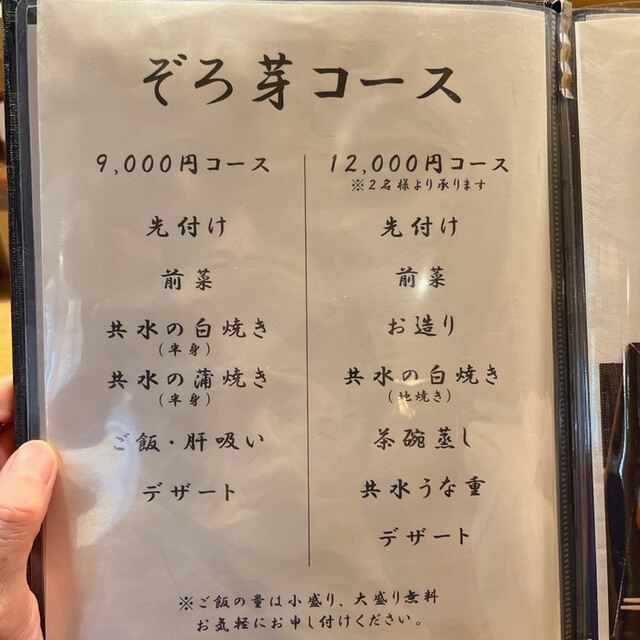 ぞろ芽コース
9,000円コース
先付け
前菜
共水の白焼き
(半身)
共水の蒲焼き
(半身)
ご飯・肝吸い
デザート
12,000円コース
※2名様より承ります
先付け
前菜
お造り
共水の白焼き
(地焼き)
茶碗蒸し
共水うな重
デザート
※ご飯の量は小盛り、大盛り無料
お気軽にお申し付けください。